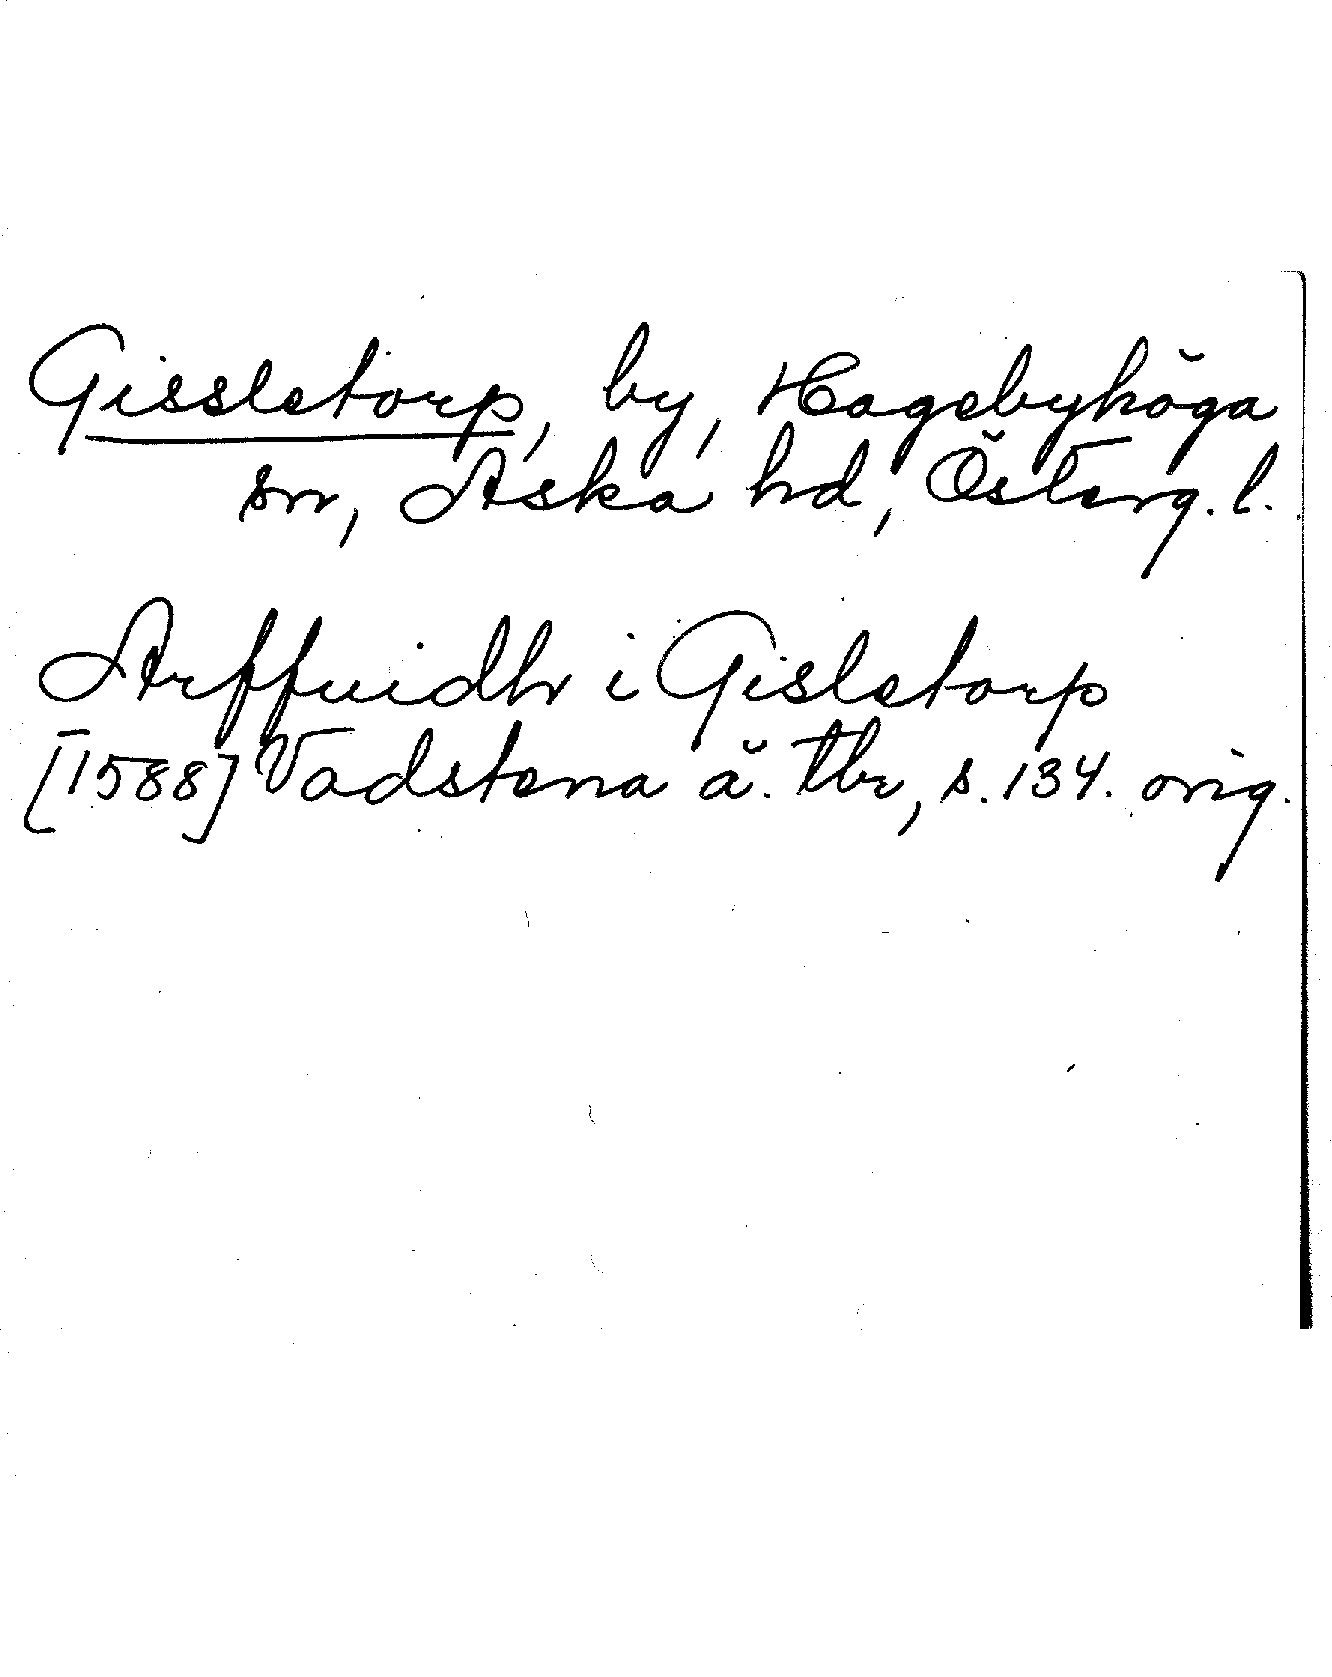 Gissletorp, by, Hagebyhöga
sn, Aska hd, Österg. l.
Arffuidh i Gisletorp
[1588] Vadstena ä. tbr, s. 134. orig.